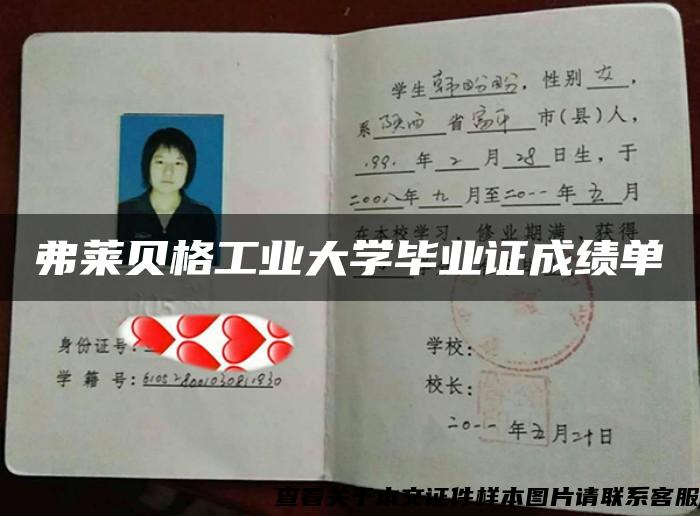 学生韩盼盼，性别女，
系陕西省富平市(县)人，
1991年2月28日生，于
二00八年九月至二0一一年五月
在本校学习，修业期满，获得
弗莱贝格工业大学毕业证成绩单
身份证号：
学籍号：610528001030811930
学校：
校长：
二0一一年五月二十日
查看关于本文证件样本图片请联系客服